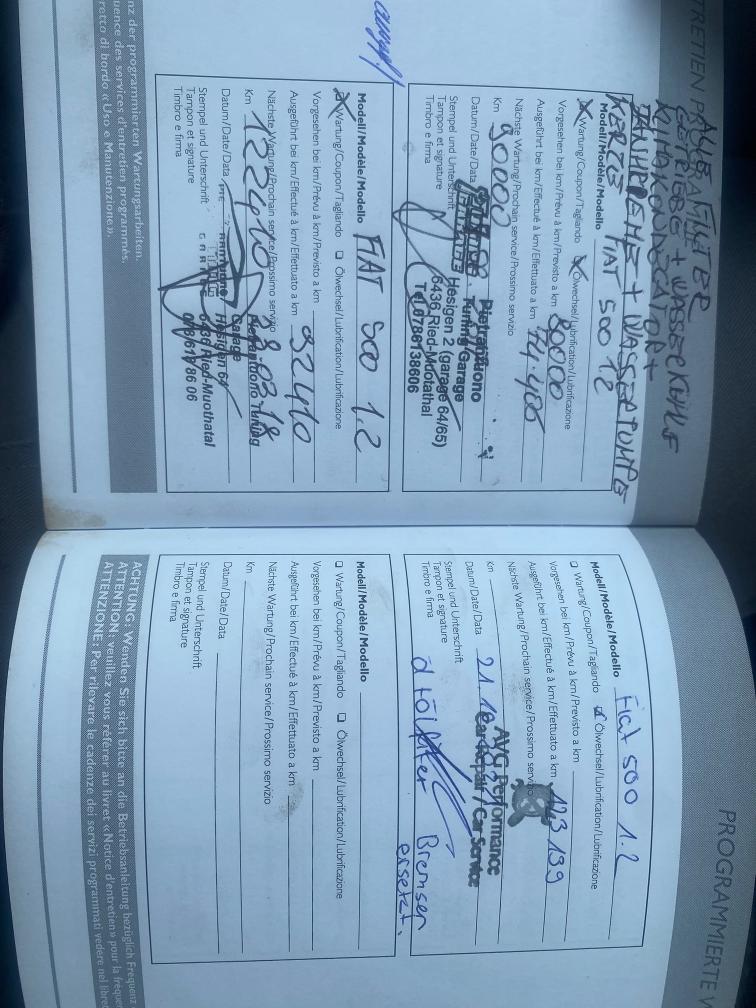 TRETIEN PR
KERZE
ZAHNRIEME + WASSERPUMPE
Modell/Modèle/Modello FIAT 500 1.2
Wartung/Coupon/Tagliando Ölwechsel/Lubrification/Lubrificazione
Vorgesehen bei km/Prévu à km/Previsto a km 80000
Ausgeführt bei km/Effectué à km/Effettuato a km 74.405
Nächste Wartung/Prochain service/Prossimo servizio
Km 90000
Datum/Date/Data
Stempel und Unterschrift
Tampon et signature
Timbro e firma
Pietrabuono
Tuning Garage
Hesigen 2 (garage 64/65)
6436 Ried-Muotathal
Tel.0786138806
Modell/Modèle/Modello FIAT 500 1.2
Wartung/Coupon/Tagliando Ölwechsel/Lubrification/Lubrificazione
Vorgesehen bei km/Prévu à km/Previsto a km
Ausgeführt bei km/Effectué à km/Effettuato a km 92410
Nächste Wartung/Prochain service/Prossimo servizio
Km 122410
Datum/Date/Data 28.03.18
Stempel und Unterschrift
Tampon et signature
Timbro e firma
Tuning
Garage
Hesigen 64
6436 Ried-Muothatal
078/611 86 06
nz der programmierten Wartungsarbeiten.
uence des services d'entretien programmés.
retto di bordo «Uso e Manutenzione».
PROGRAMMIERTE
Modell/Modèle/Modello Fiat 500 1.2
Wartung/Coupon/Tagliando Ölwechsel/Lubrification/Lubrificazione
Vorgesehen bei km/Prévu à km/Previsto a km
Ausgeführt bei km/Effectué à km/Effettuato a km 123 139
Nächste Wartung/Prochain service/Prossimo servizio
Km
Datum/Date/Data
Stempel und Unterschrift
Tampon et signature
Timbro e firma
AVG Performance
Car Repair / Car Service
Bremsen
ersetzt.
Modell/Modèle/Modello
Wartung/Coupon/Tagliando Ölwechsel/Lubrification/Lubrificazione
Vorgesehen bei km/Prévu à km/Previsto a km
Ausgeführt bei km/Effectué à km/Effettuato a km
Nächste Wartung/Prochain service/Prossimo servizio
Km
Datum/Date/Data
Stempel und Unterschrift
Tampon et signature
Timbro e firma
ACHTUNG. Wenden Sie sich bitte an die Betriebsanleitung bezüglich Frequenz
ATTENTION: veuillez vous référer au livret «Notice d'entretien» pour la fréquen
ATTENZIONE: Per rilevare le cadenze dei servizi programmati vedere nel libret